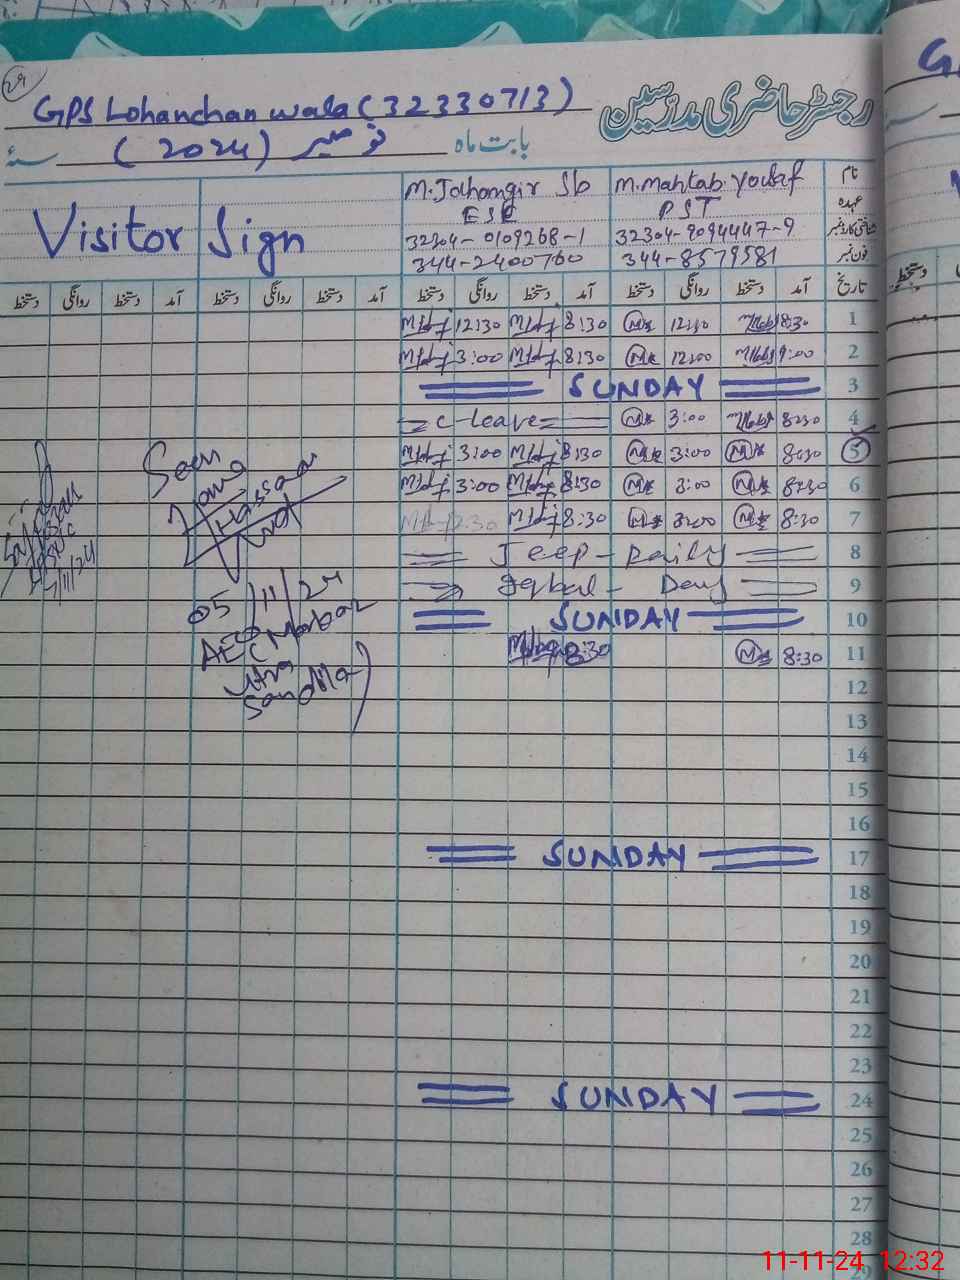 29
رجسٹر حاضری مدرسین
GPS Lohanchan wala (32330713)
بابت ماہ نومبر (2024) سنہ
نام M. Mahtab Yousaf M. Jahangir Sb
عہدہ PST ESE
شناختی کارڈ نمبر 32304-9094447-9 32304-0109268-1
فون نمبر 344-8579581 344-2400760
Visitor Sign
تاریخ آمد دستخط روانگی دستخط آمد دستخط روانگی دستخط آمد دستخط روانگی دستخط آمد دستخط روانگی دستخط
1 8:30 12:30 8:30 12:30
2 9:00 12:00 8:30 3:00
3 SUNDAY
4 8:30 3:00 C-Leave
5 8:30 3:00 8:30 3:00
6 8:30 3:00 8:30 3:00
7 8:30 3:00 8:30
8 Jeep - Raily
9 Iqbal - Day
10 SUNDAY
11 8:30 8:30
12
13
14
15
16
17 SUNDAY
18
19
20
21
22
23
24 SUNDAY
25
26
27
28
29
Seen
Hassan
05/11/24
AEO Markaz
Sandila
7/11/24
دستخط
11-11-24 12:32